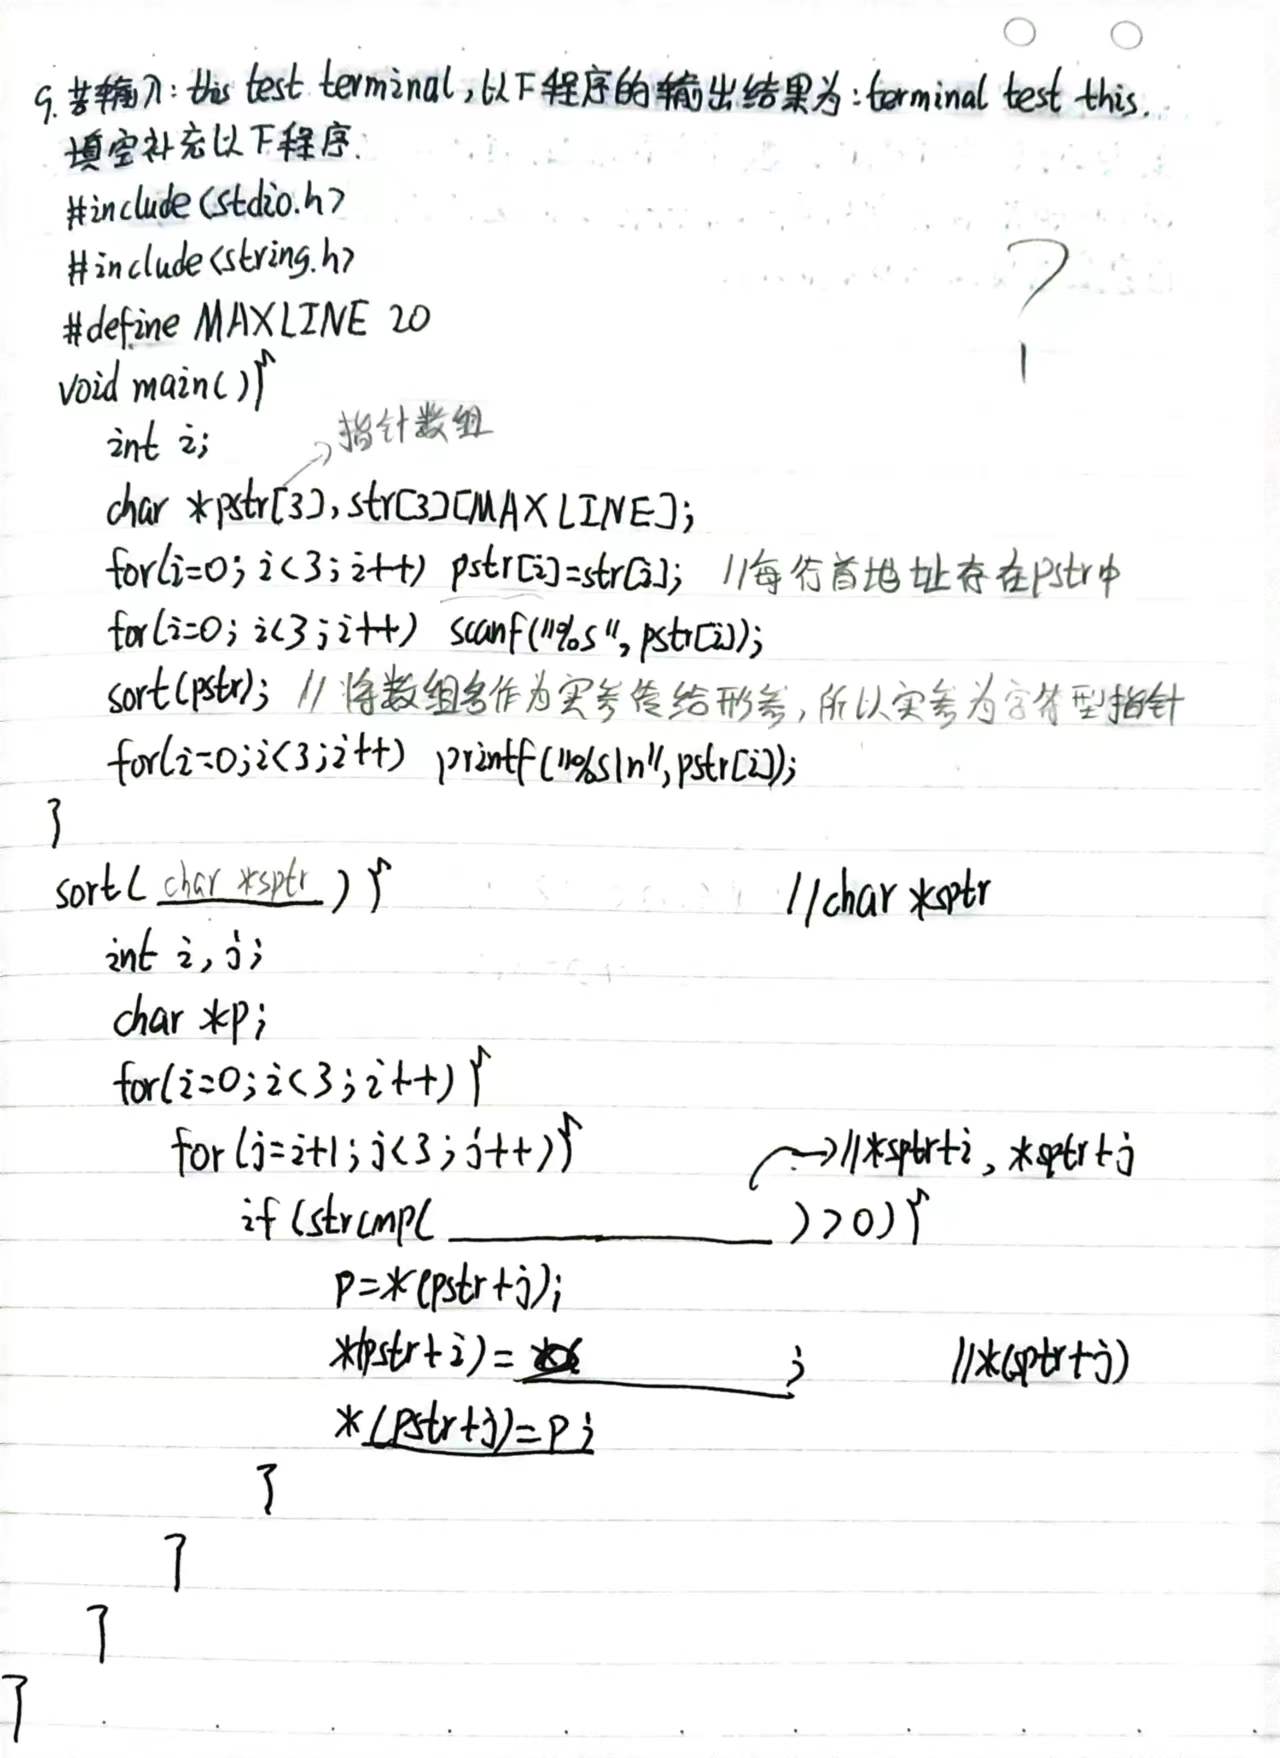 9. 若输入: this test terminal,以下程序的输出结果为: terminal test this.
填空补充以下程序.
#include<stdio.h>
#include<string.h>
#define MAXLINE 20
void main(){
int i;
指针数组
char *pstr[3], str[3][MAXLINE];
for(i=0; i<3; i++) pstr[i]=str[i]; //每行首地址存在pstr中
for(i=0; i<3; i++) scanf("%s", pstr[i]);
sort(pstr); //将数组名作为实参传给形参,所以实参为字符型指针
for(i=0;i<3;i++) printf("%s\n",pstr[i]);
}
sort( char *sptr ) { //char *sptr
int i, j;
char *p;
for(i=0;i<3;i++){
for(j=i+1;j<3;j++){ //*sptr+i, *sptr+j
if(strcmp( )>0){
p=*(pstr+j);
*(pstr+i)= ; //*(sptr+j)
*(pstr+j)=p;
}
}
}
}
?